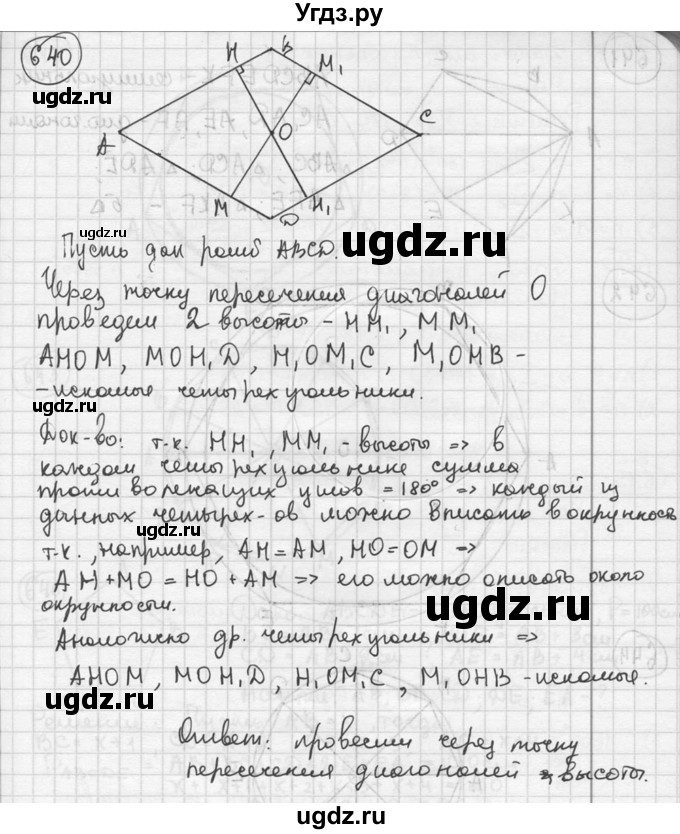 Угдз.ру
640
H
B
M₁
A
O
C
M
D
H₁
Пусть дан ромб ABCD.
Через точку пересечения диагоналей O
проведем 2 высоты - HH₁, MM₁
AHOM, MOH₁D, H₁OM₁C, M₁OHB -
- искомые четырехугольники.
Док-во: т.к. HH₁, MM₁ - высоты => в
каждом четырехугольнике сумма
противолежащих углов = 180° => каждый из
данных четырех-ов можно вписать в окружность
т.к., например, AH = AM, HO = OM =>
AH + MO = HO + AM => его можно описать около
окружности.
Аналогично др. четырехугольники =>
AHOM, MOH₁D, H₁OM₁C, M₁OHB - искомые.
Ответ: провести через точку
пересечения диагоналей высоты.
ugdz.ru
ugdz.ru
ugdz.ru
ugdz.ru
ugdz.ru
ugdz.ru
ugdz.ru
ugdz.ru
ugdz.ru